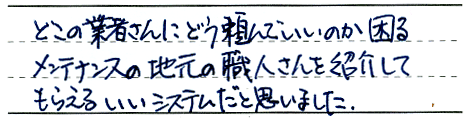 どこの業者さんにどう頼んでいいのか困る
メンテナンスの地元の職人さんを紹介して
もらえるいいシステムだと思いました.